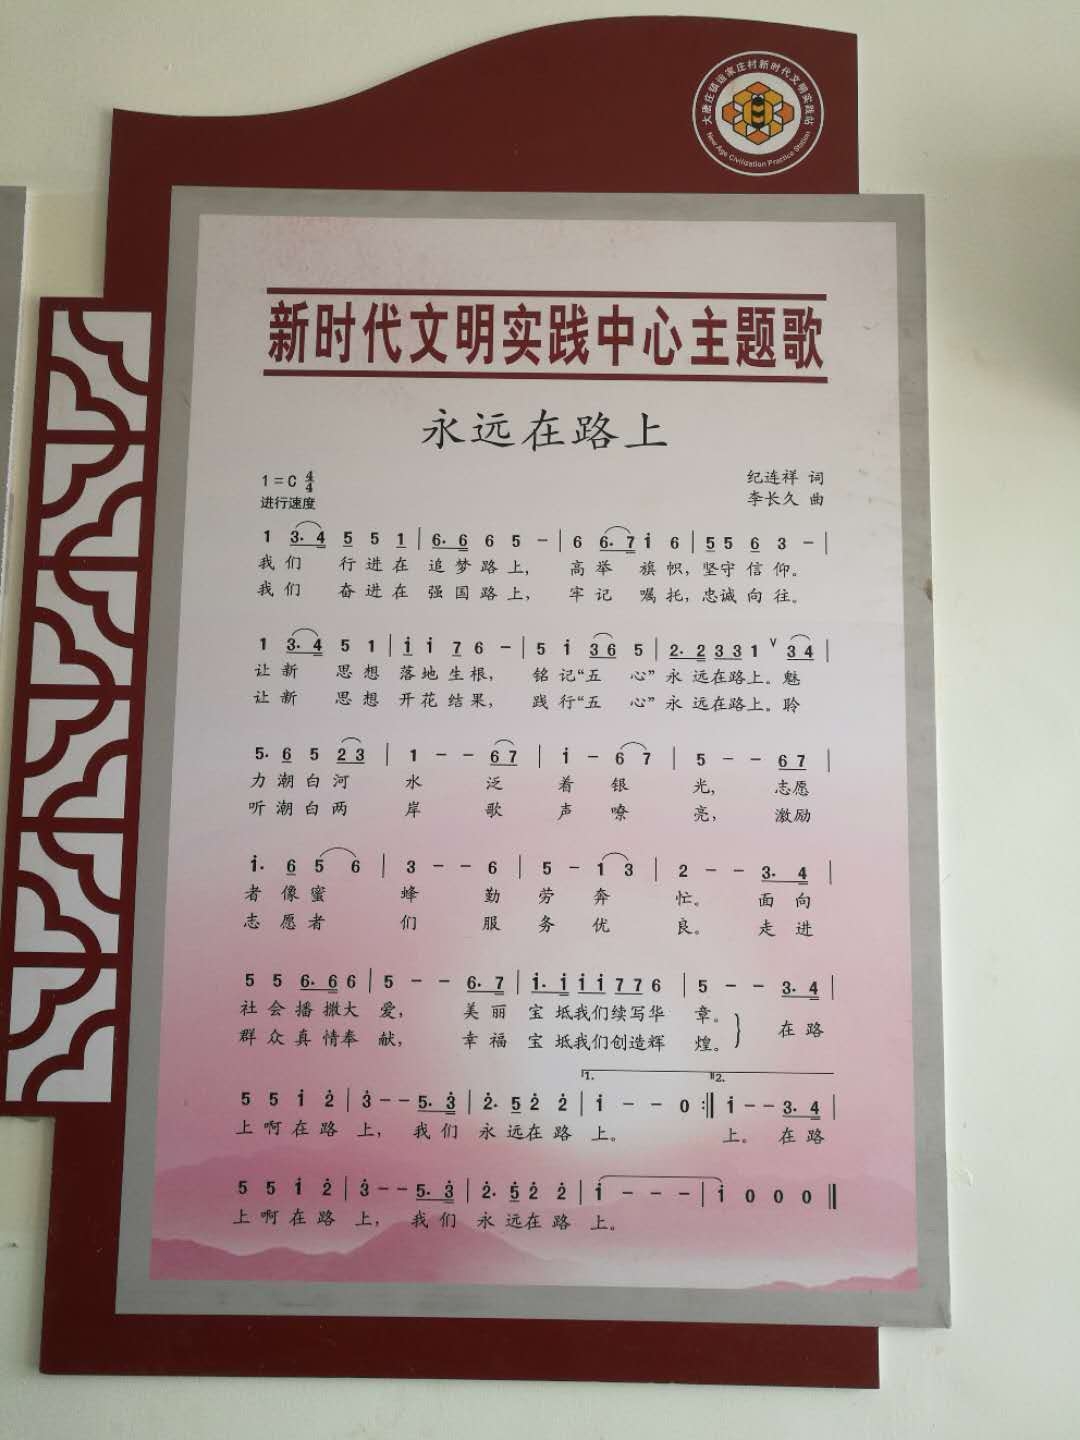 大唐庄镇 家庄村新时代文明实践站
New Age Civilization Practice Station
新时代文明实践中心主题歌
永远在路上
1=C 4/4
纪连祥 词
进行速度
李长久 曲
1 3. 4 5 5 1 | 6. 6 6 5 - | 6 6. 7 i 6 | 5 5 6 3 - |
我们 行进在 追梦路上, 高举 旗帜,坚守信仰。
我们 奋进在 强国路上, 牢记 嘱托,忠诚向往。
1 3. 4 5 1 | i i 7 6 - | 5 i 3 6 5 | 2. 2 3 3 1 ∨ 3 4 |
让新 思想 落地生根, 铭记“五 心”永远在路上。魅
让新 思想 开花结果, 践行“五 心”永远在路上。聆
5. 6 5 2 3 | 1 - - 6 7 | i - 6 7 | 5 - - 6 7 |
力潮白河 水 泛 着 银 光, 志愿
听潮白两 岸 歌 声 嘹 亮, 激励
i. 6 5 6 | 3 - - 6 | 5 - 1 3 | 2 - - 3. 4 |
者像蜜 蜂 勤 劳 奔 忙。 面向
志愿者 们 服 务 优 良。 走进
5 5 6. 6 6 | 5 - - 6. 7 | i. i i i 7 7 6 | 5 - - 3. 4 |
社会播撒大 爱, 美丽 宝坻我们续写华 章。 在路
群众真情奉 献, 幸福 宝坻我们创造辉 煌。
1. 2.
5 5 i 2 | 3 - - 5. 3 | 2. 5 2 2 | i - - 0 :‖ i - - 3. 4 |
上啊在路 上, 我们 永远在路 上。 上。 在路
5 5 i 2 | 3 - - 5. 3 | 2. 5 2 2 | i - - - | i 0 0 0 ‖
上啊在路 上, 我们 永远在路 上。